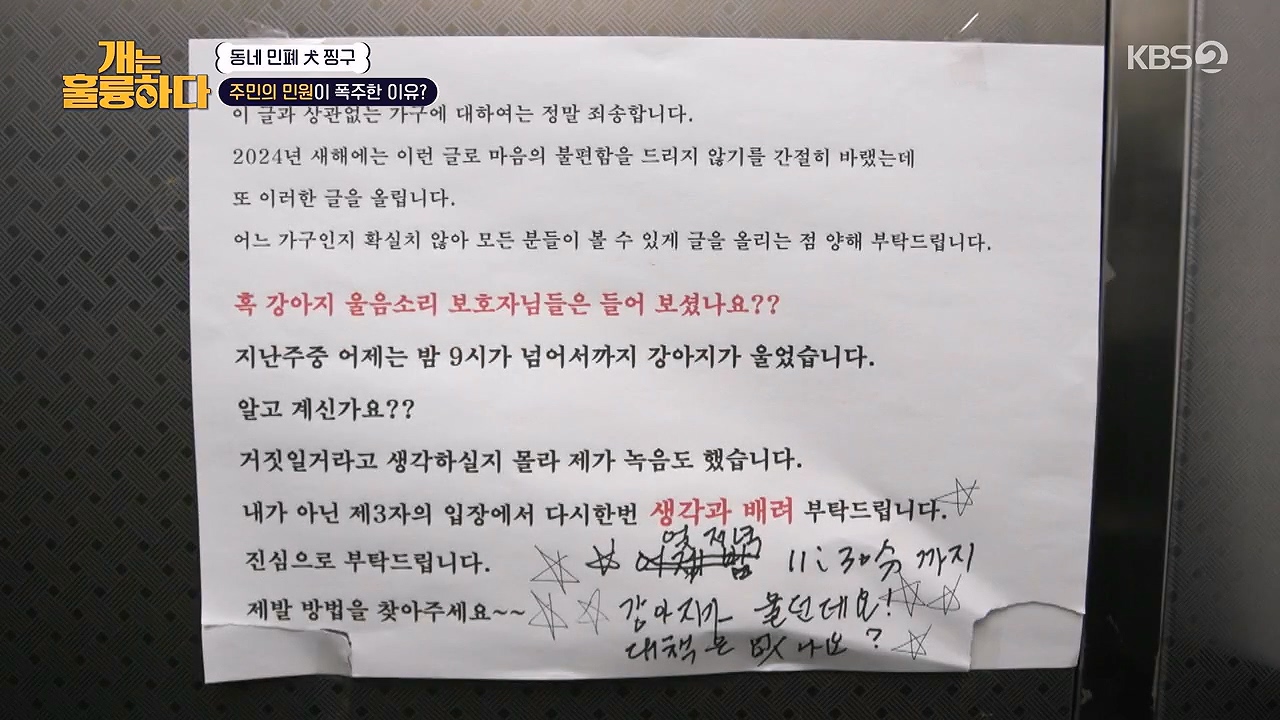 개는 훌륭하다
동네 민폐 犬 찡구
주민의 민원이 폭주한 이유?
KBS2
이 글과 상관없는 가구에 대하여는 정말 죄송합니다.
2024년 새해에는 이런 글로 마음의 불편함을 드리지 않기를 간절히 바랬는데
또 이러한 글을 올립니다.
어느 가구인지 확실치 않아 모든 분들이 볼 수 있게 글을 올리는 점 양해 부탁드립니다.
혹 강아지 울음소리 보호자님들은 들어 보셨나요??
지난주중 어제는 밤 9시가 넘어서까지 강아지가 울었습니다.
알고 계신가요??
거짓일거라고 생각하실지 몰라 제가 녹음도 했습니다.
내가 아닌 제3자의 입장에서 다시한번 생각과 배려 부탁드립니다.
진심으로 부탁드립니다.
제발 방법을 찾아주세요~~
11:30分 까지
강아지가 울던데요!
대책은 없나요?